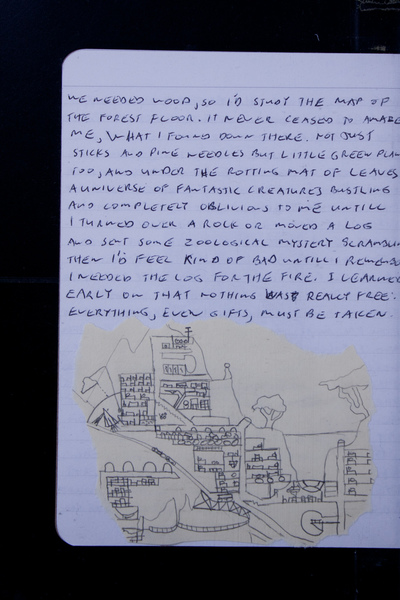 WE NEEDED WOOD, SO I'D STUDY THE MAP OF
THE FOREST FLOOR. IT NEVER CEASED TO AMAZE
ME, WHAT I FOUND DOWN THERE. NOT JUST
STICKS AND PINE NEEDLES BUT LITTLE GREEN PLAN
TOO, AND UNDER THE ROTTING MAT OF LEAVES
A UNIVERSE OF FANTASTIC CREATURES BUSTLING
AND COMPLETELY OBLIVIOUS TO ME UNTILL
I TURNED OVER A ROCK OR MOVED A LOG
AND SENT SOME ZOOLOGICAL MYSTERY SCRAMBLI
THEN I'D FEEL KIND OF BAD UNTILL I REMEMBE
I NEEDED THE LOG FOR THE FIRE. I LEARNED
EARLY ON THAT NOTHING WAS REALLY FREE.
EVERYTHING, EVEN GIFTS, MUST BE TAKEN.